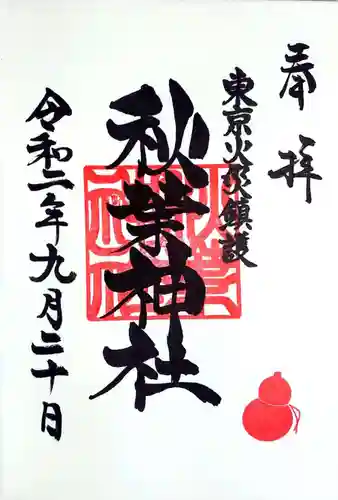 奉拝
東京火災鎮護
秋葉神社
令和二年九月二十日